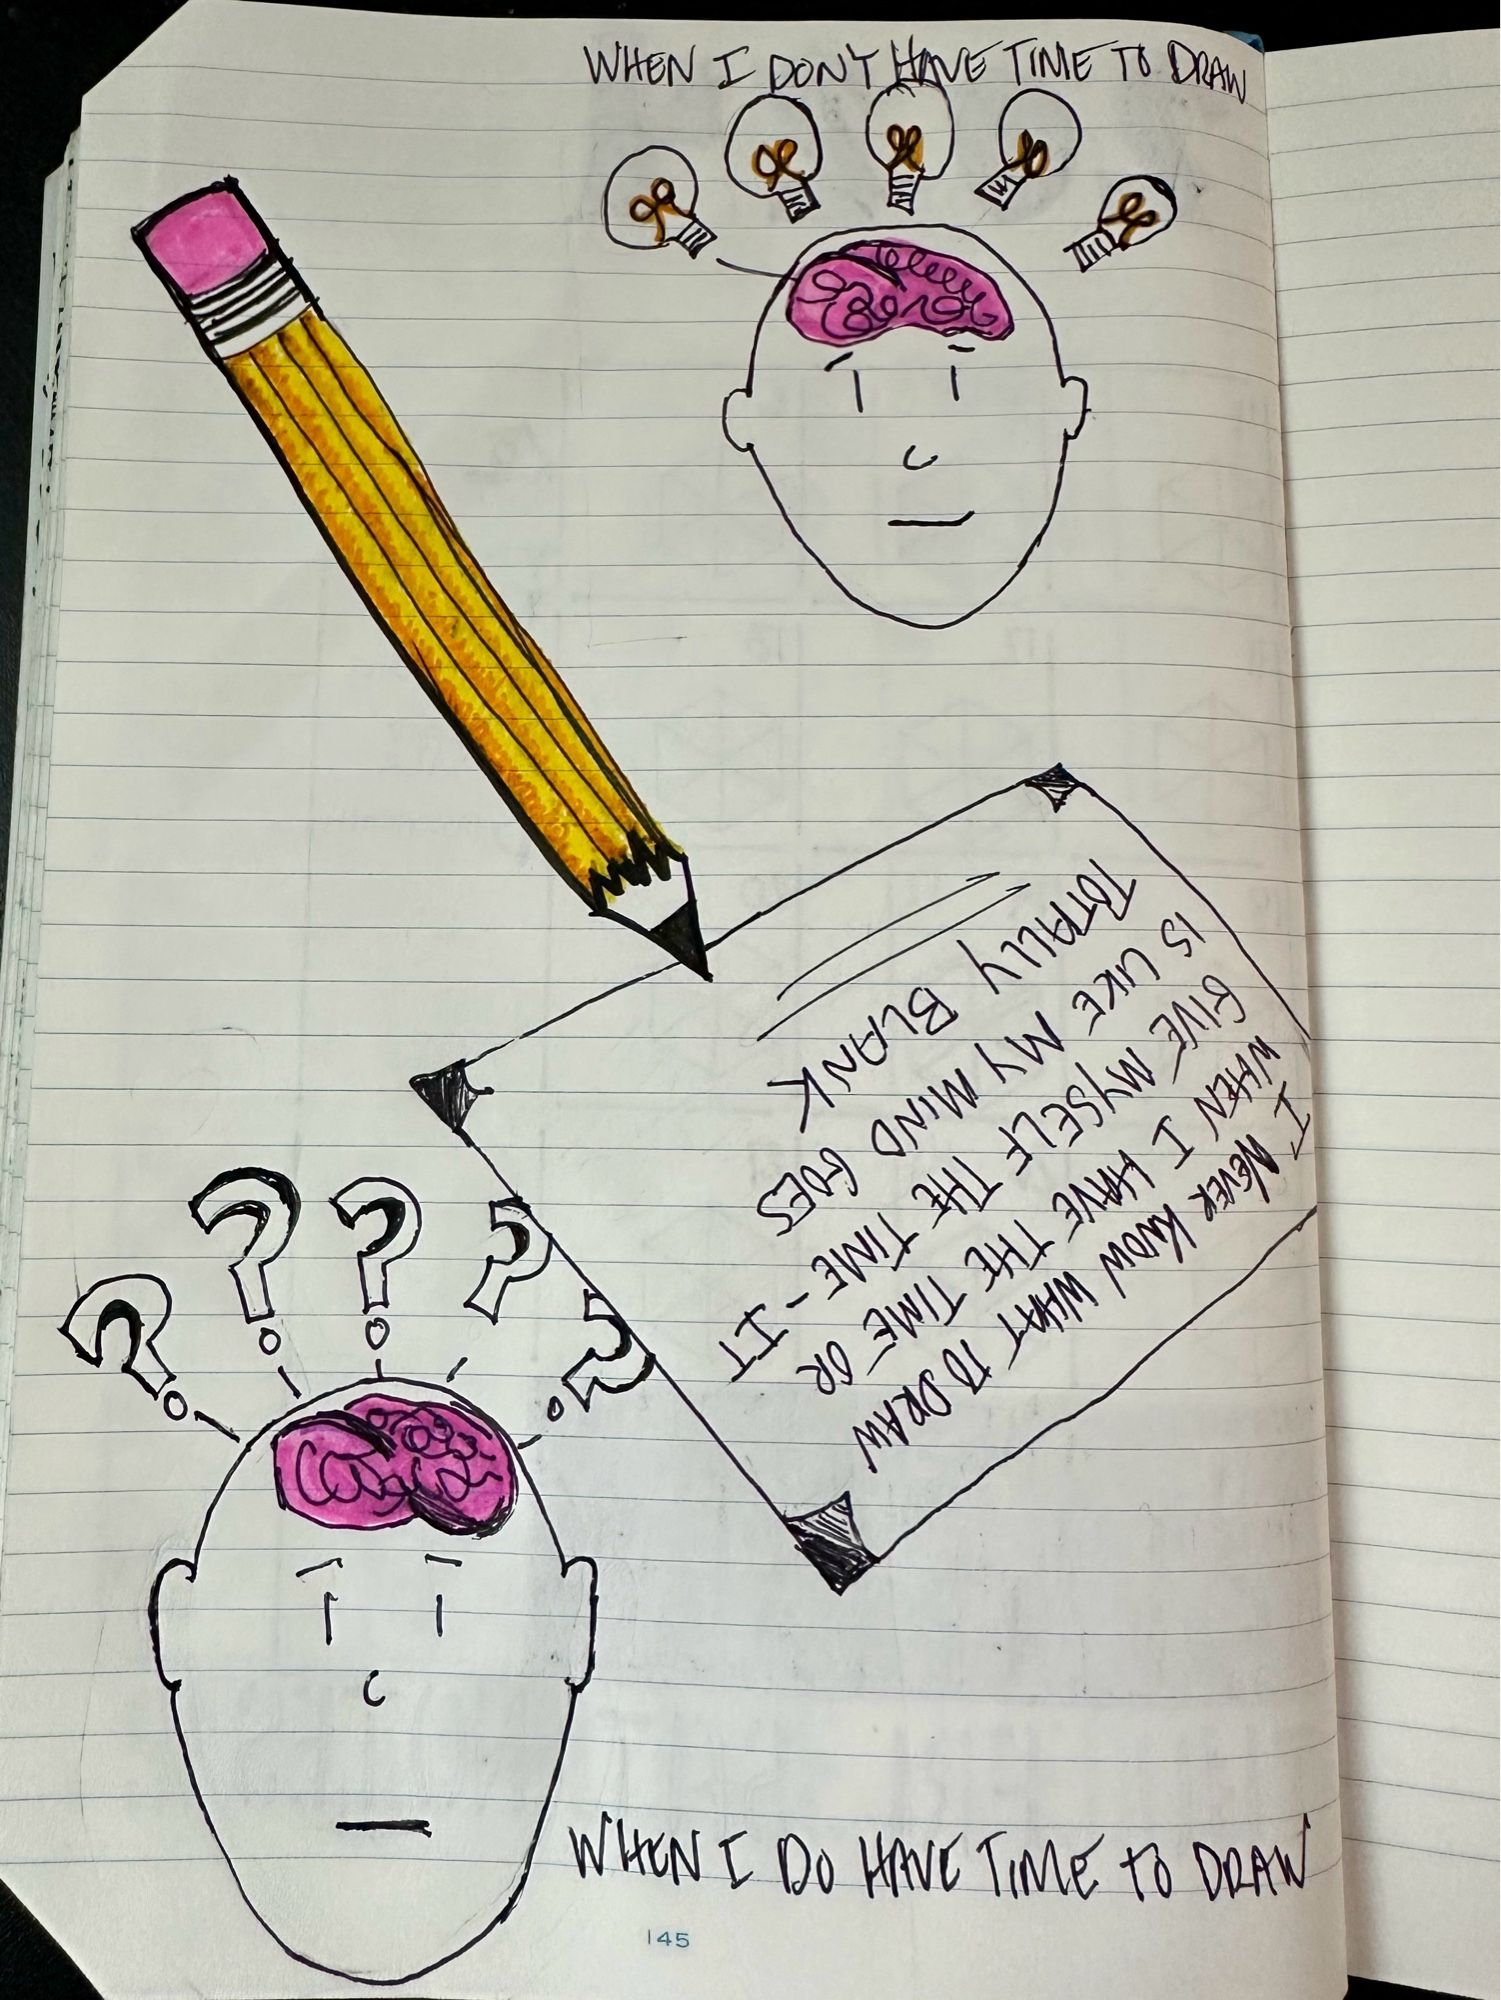 WHEN I DON'T HAVE TIME TO DRAW
I NEVER KNOW WHAT TO DRAW
WHEN I HAVE THE TIME OR
GIVE MYSELF THE TIME - IT
IS LIKE MY MIND GOES
TOTALLY BLANK
WHEN I DO HAVE TIME TO DRAW
145